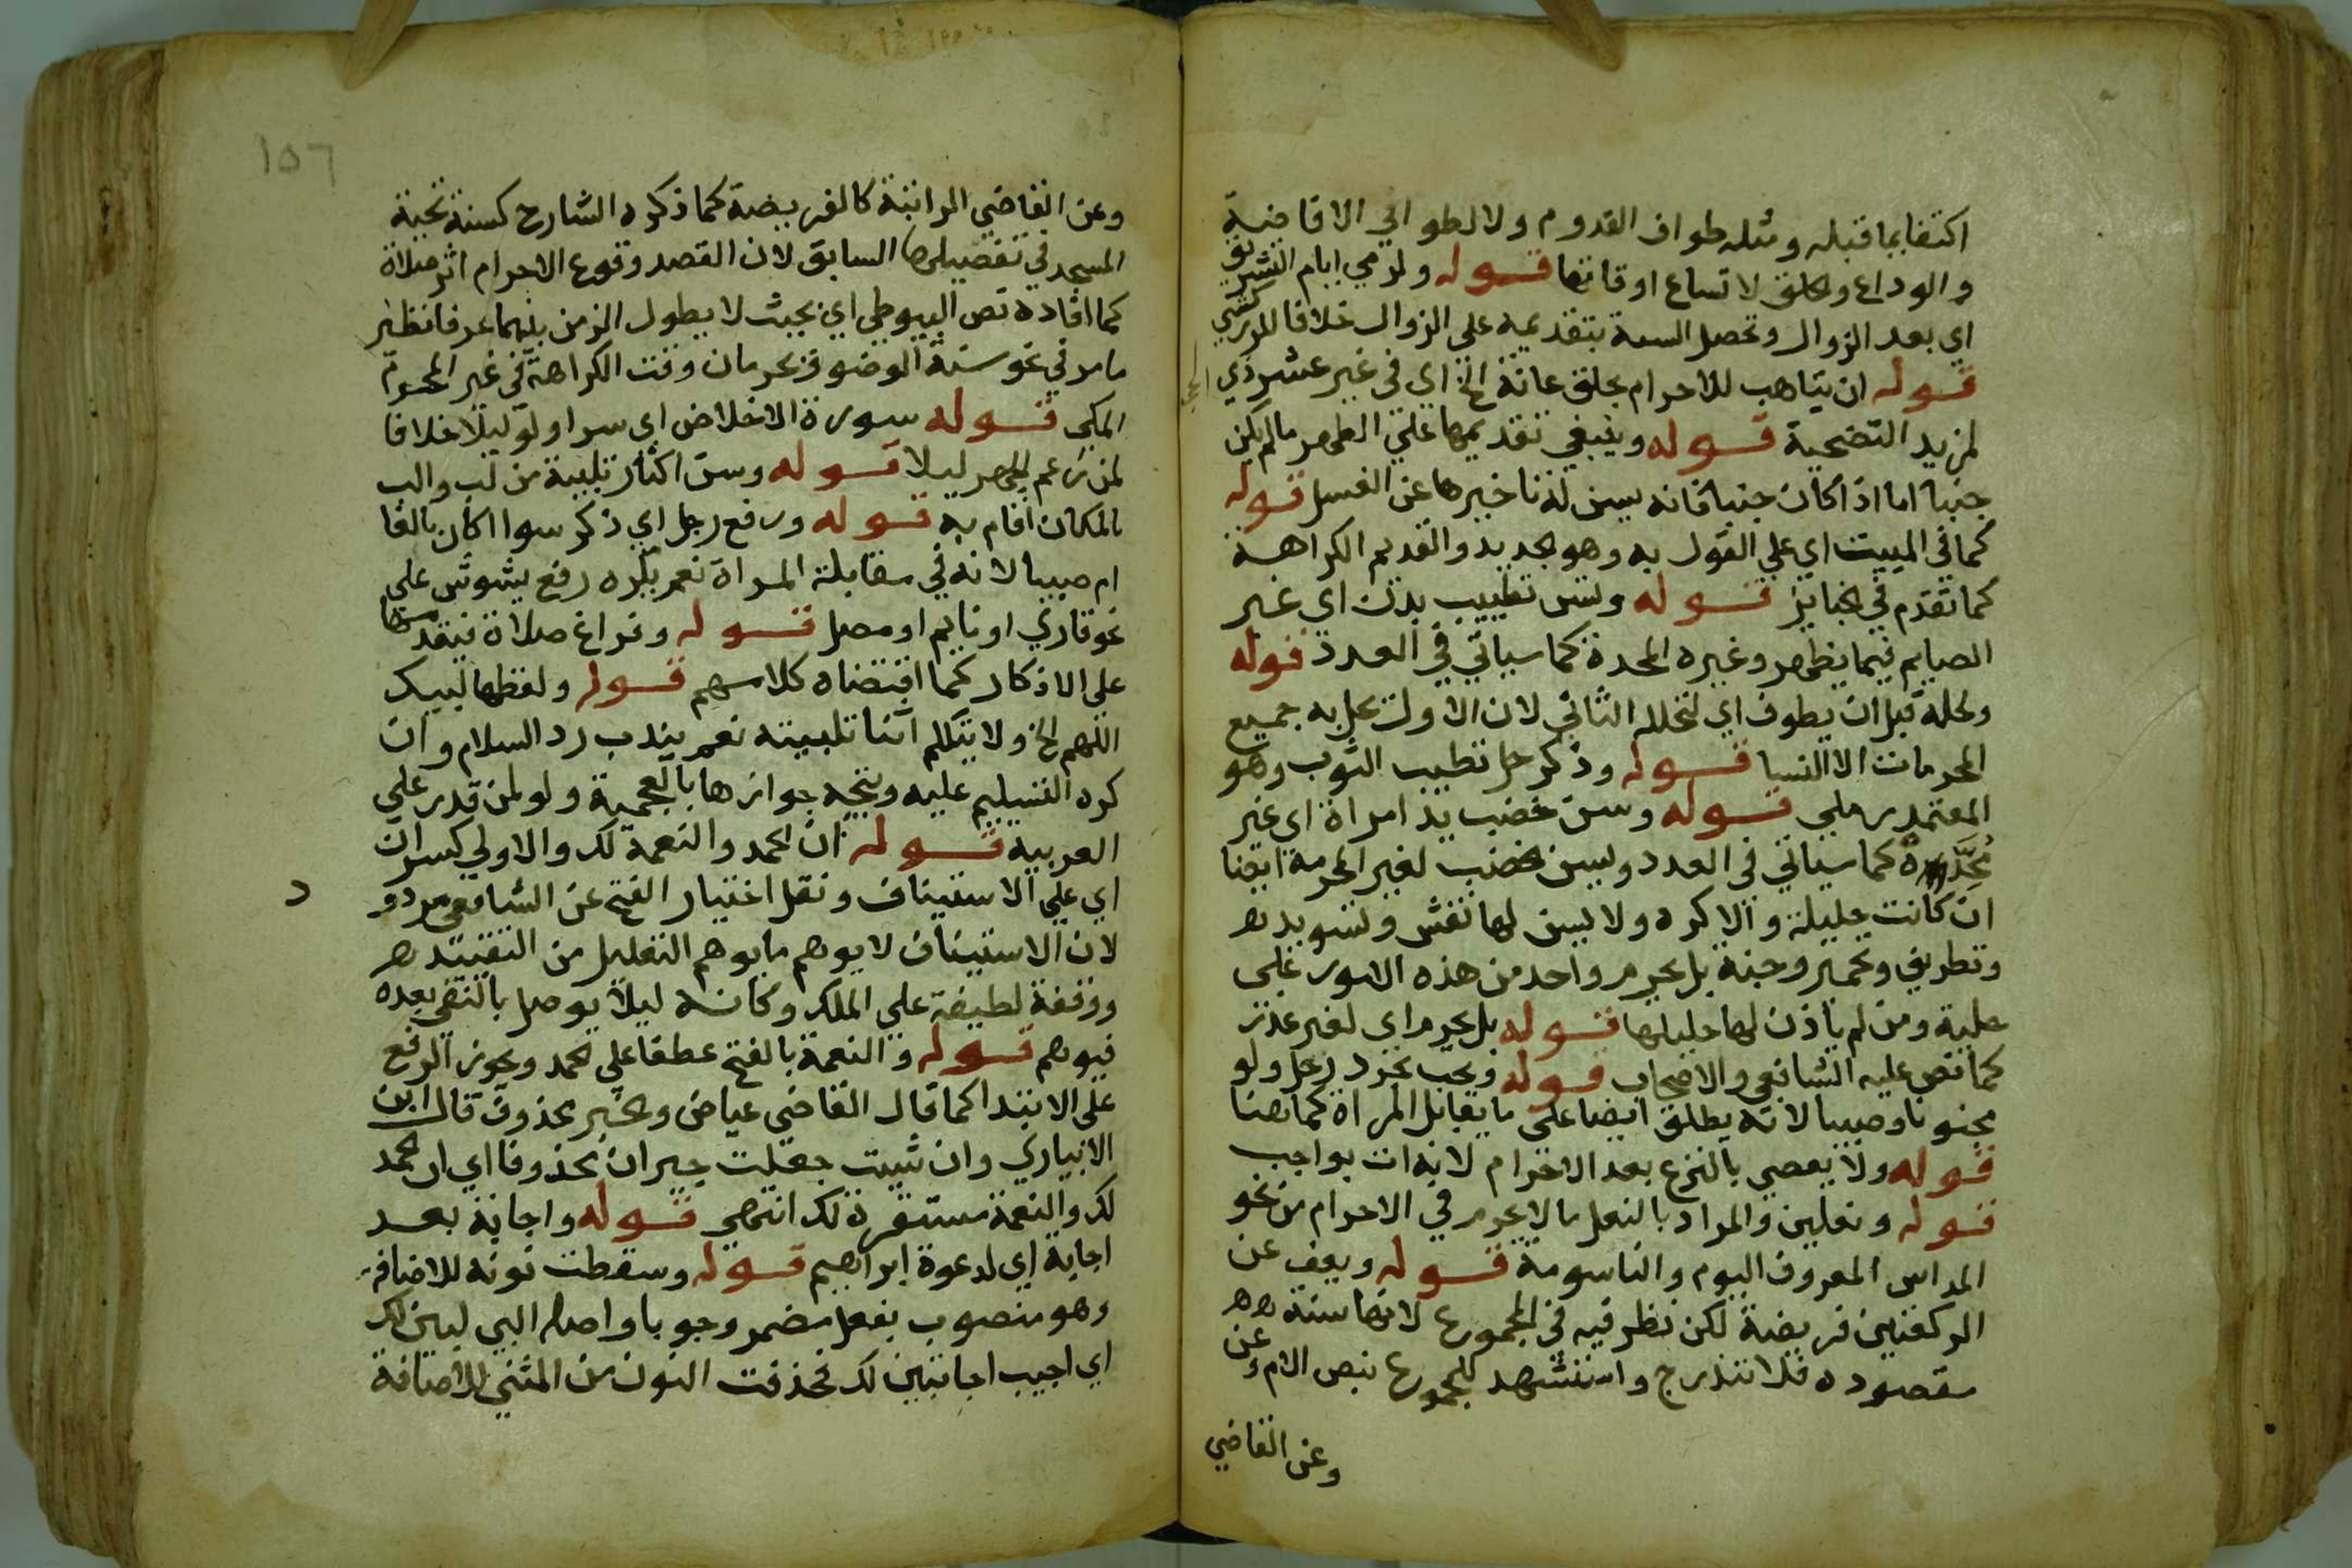 اكتفا بما قبله ومثله طواف القدوم ولا لطوافي الافاضة
والوداع والحلق لاتساع اوقاتها قوله ولرمي ايام التشريق
اي بعد الزوال وتحصل السنة بتقديمه على الزوال خلافا للزركشي
قوله ان يتاهب للاحرام بحلق عانة الخ اي في غير عشر ذي الحجة
لمريد التضحية قوله وينبغي تقديمها على الطهر ما لم يكن
جنبا اما اذا كان جنبا فانه يسن له تاخيرها عن الغسل قوله
كما في الميت اي على القول به وهو الجديد والقديم الكراهة
كما تقدم في الجنايز قوله وتسن تطييب بدن اي غير
الصايم فيما يظهر وغيره المحدة كما سياتي في العدد قوله
ولحله قبل ان يطوف اي لتحلله الثاني لان الاول يحل به جميع
المحرمات الا النسا قوله وذكر حل تطييب الثوب وهو
المعتمد رملي قوله وسن خضب يد امراة اي غير
مُحِدَّة كما سياتي في العدد ويسن خضب لغير المحرمة ايضا
ان كانت حليلة والا كره ولا يسن لها نقش وتسويد
وتطريف وتحمير وجنة بل يحرم واحد من هذه الامور على
خلية ومن لم ياذن لها حليلها قوله بل يحرم اي لغير عذر
كما نص عليه الشافعي والاصحاب قوله ويجب تجرد رجل ولو
مجنونا وصبيا لانه يطلق ايضا على ما يقابل المراة كما هنا
قوله ولا يعصي بالنزع بعد الاحرام لانه ات بواجب
قوله ونعلين والمراد بالنعل ما لا يحرم في الاحرام من نحو
المداس المعروف اليوم والتاسومة قوله ويغني عن
الركعتين فريضة لكن نظر فيه في المجموع لانها سنة
مقصودة فلا تندرج واستشهد للمجموع بنص الام وعن
وعن القاضي
١٥٦
وعن القاضي الراتبة كالفريضة كما ذكره الشارح كسنة تحية
المسجد في تفصيلها السابق لان القصد وقوع الاحرام اثر صلاة
كما افاده نص البويطي اي بحيث لا يطول الزمن بينهما عرفا نظير
ما مر في نحو سنة الوضو وتحرمان وقت الكراهة في غير الحرم
المكي قوله سورة الاخلاص اي سرا ولو ليلا خلافا
لمن زعم الجهر ليلا قوله وسن اكثار تلبية من لب والب
بالمكان اقام به قوله ورفع رجل اي ذكر سوا اكان بالغا
ام صبيا لانه في مقابلة المراة نعم يكره رفع يشوش على
نحو قاري او نايم او مصل قوله وفراغ صلاة فيقدمها
على الاذكار كما اقتضاه كلامهم قوله ولفظها لبيك
اللهم الخ ولا يتكلم اثنا تلبيته نعم يندب رد السلام وان
كره التسليم عليه ويتجه جوازها بالعجمية ولو لمن قدر على
العربية قوله ان الحمد والنعمة لك والاولى كسر ان
اي على الاستيناف ونقل اختيار الفتح عن الشافعي مردود
لان الاستيناف لا يوهم ما يوهم التعليل من التقييد
ووقفة لطيفة على الملك وكانه ليلا يوصل بالنفي بعده
فيوهم قوله والنعمة بالفتح عطفا على الحمد ويجوز الرفع
على الابتدا كما قال القاضي عياض والخبر محذوف قال ابن
الانباري وان شيت جعلت خبر ان محذوفا اي ان الحمد
لك والنعمة مستقرة لك انتهى قوله واجابة بعد
اجابة اي لدعوة ابراهيم قوله وسقطت نونه للاضافة
وهو منصوب بفعل مضمر وجوبا واصله البي لبين لك
اي اجيب اجابتين لك فحذفت النون من المثنى للاضافة